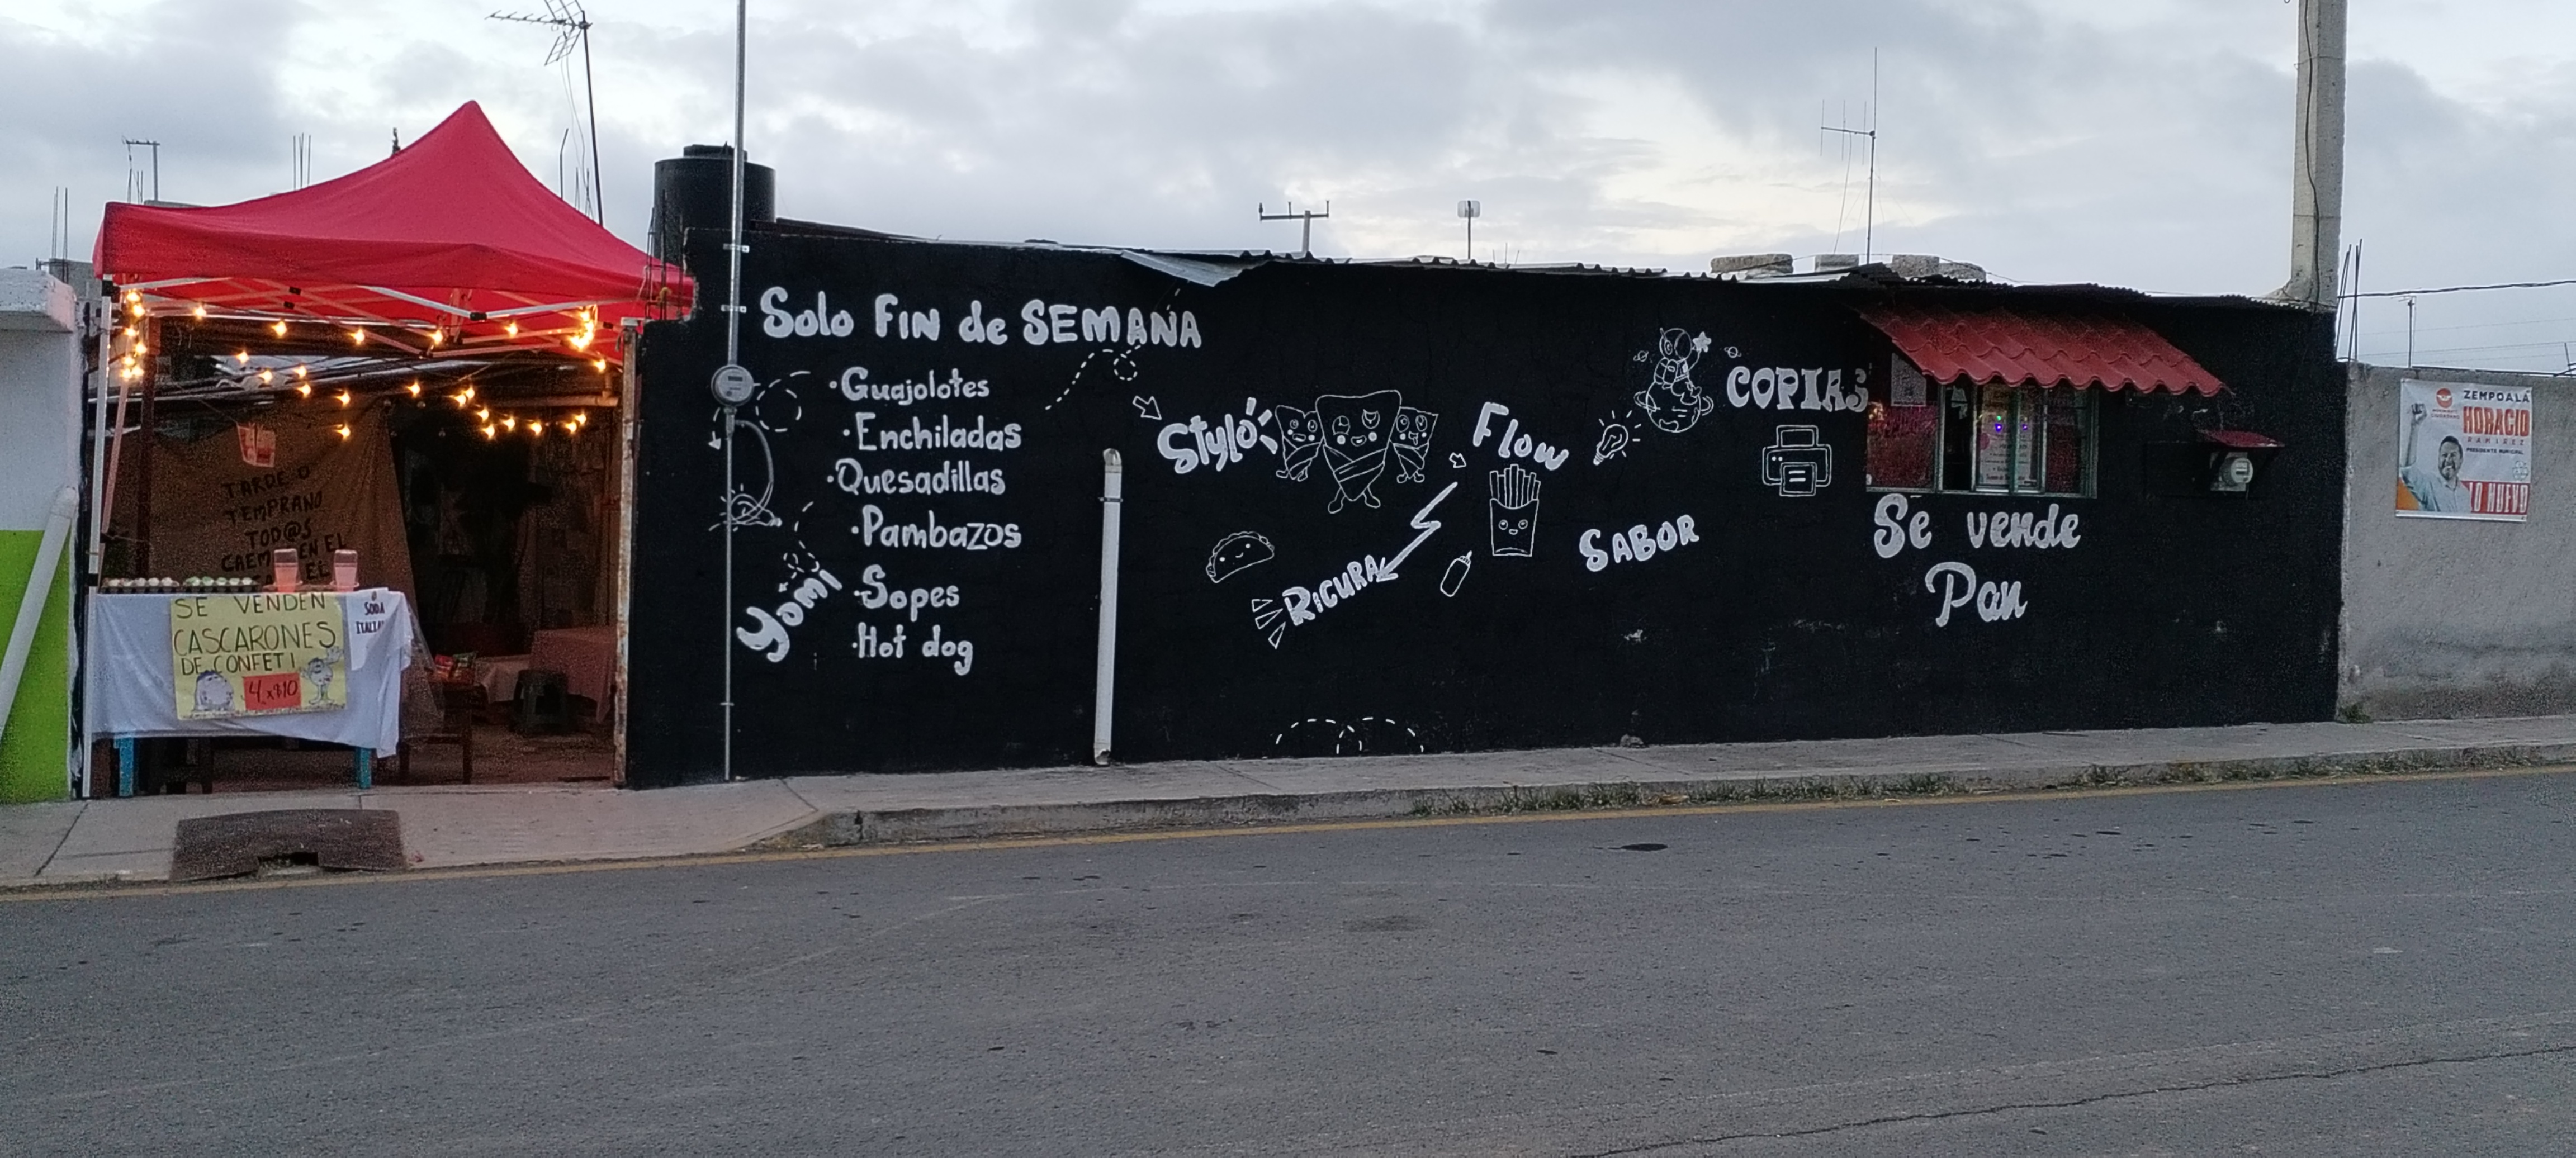 TARDE O
TEMPRANO
TOD@S
CAEM EN EL
EL
SE VENDEN
CASCARONES
DE CONFETI
4x$10
SODA
Solo FIN de SEMANA
•Guajolotes
•Enchiladas
•Quesadillas
•Pambazos
•Sopes
•Hot dog
Yomi
Stylo
Flow
RICURA
SABOR
COPIAS
Se vende
Pan
ZEMPOALA
HORACIO
RAMIREZ
PRESIDENTE MUNICIPAL
LO NUEVO